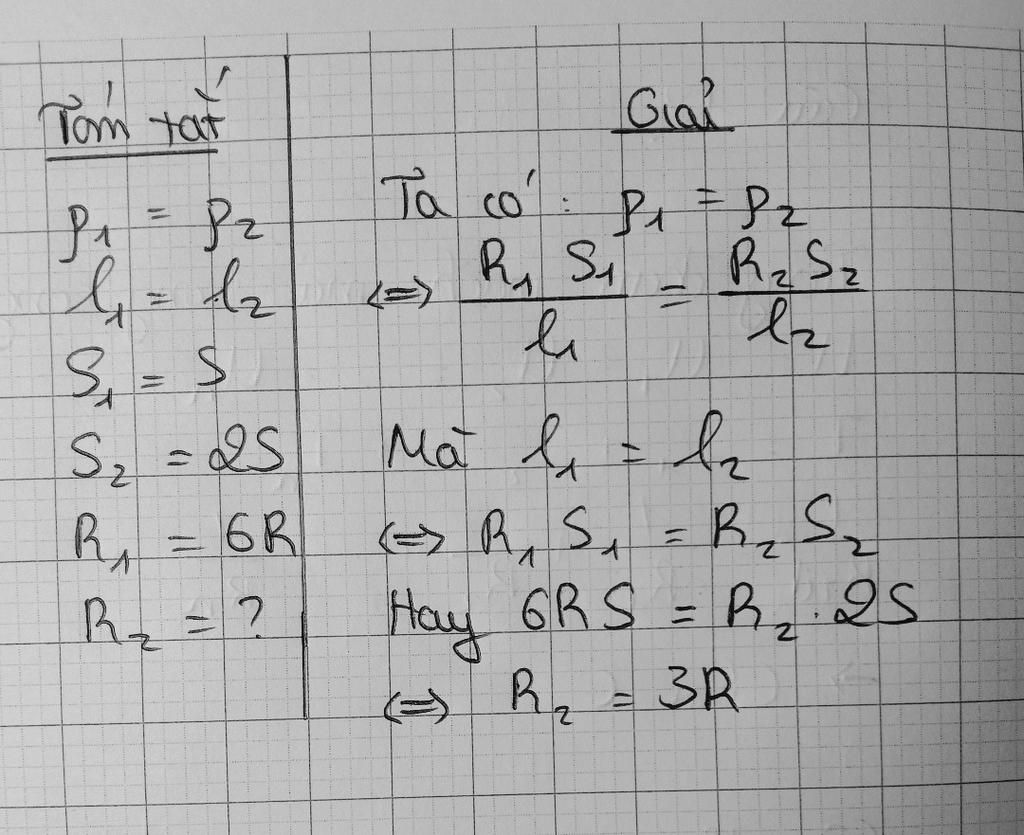 Tóm tắt
ρ₁ = ρ₂
l₁ = l₂
S₁ = S
S₂ = 2S
R₁ = 6R
R₂ = ?
Giải
Ta có: ρ₁ = ρ₂
<=> R₁ S₁ / l₁ = R₂ S₂ / l₂
Mà l₁ = l₂
<=> R₁ S₁ = R₂ S₂
Hay 6RS = R₂ . 2S
<=> R₂ = 3R